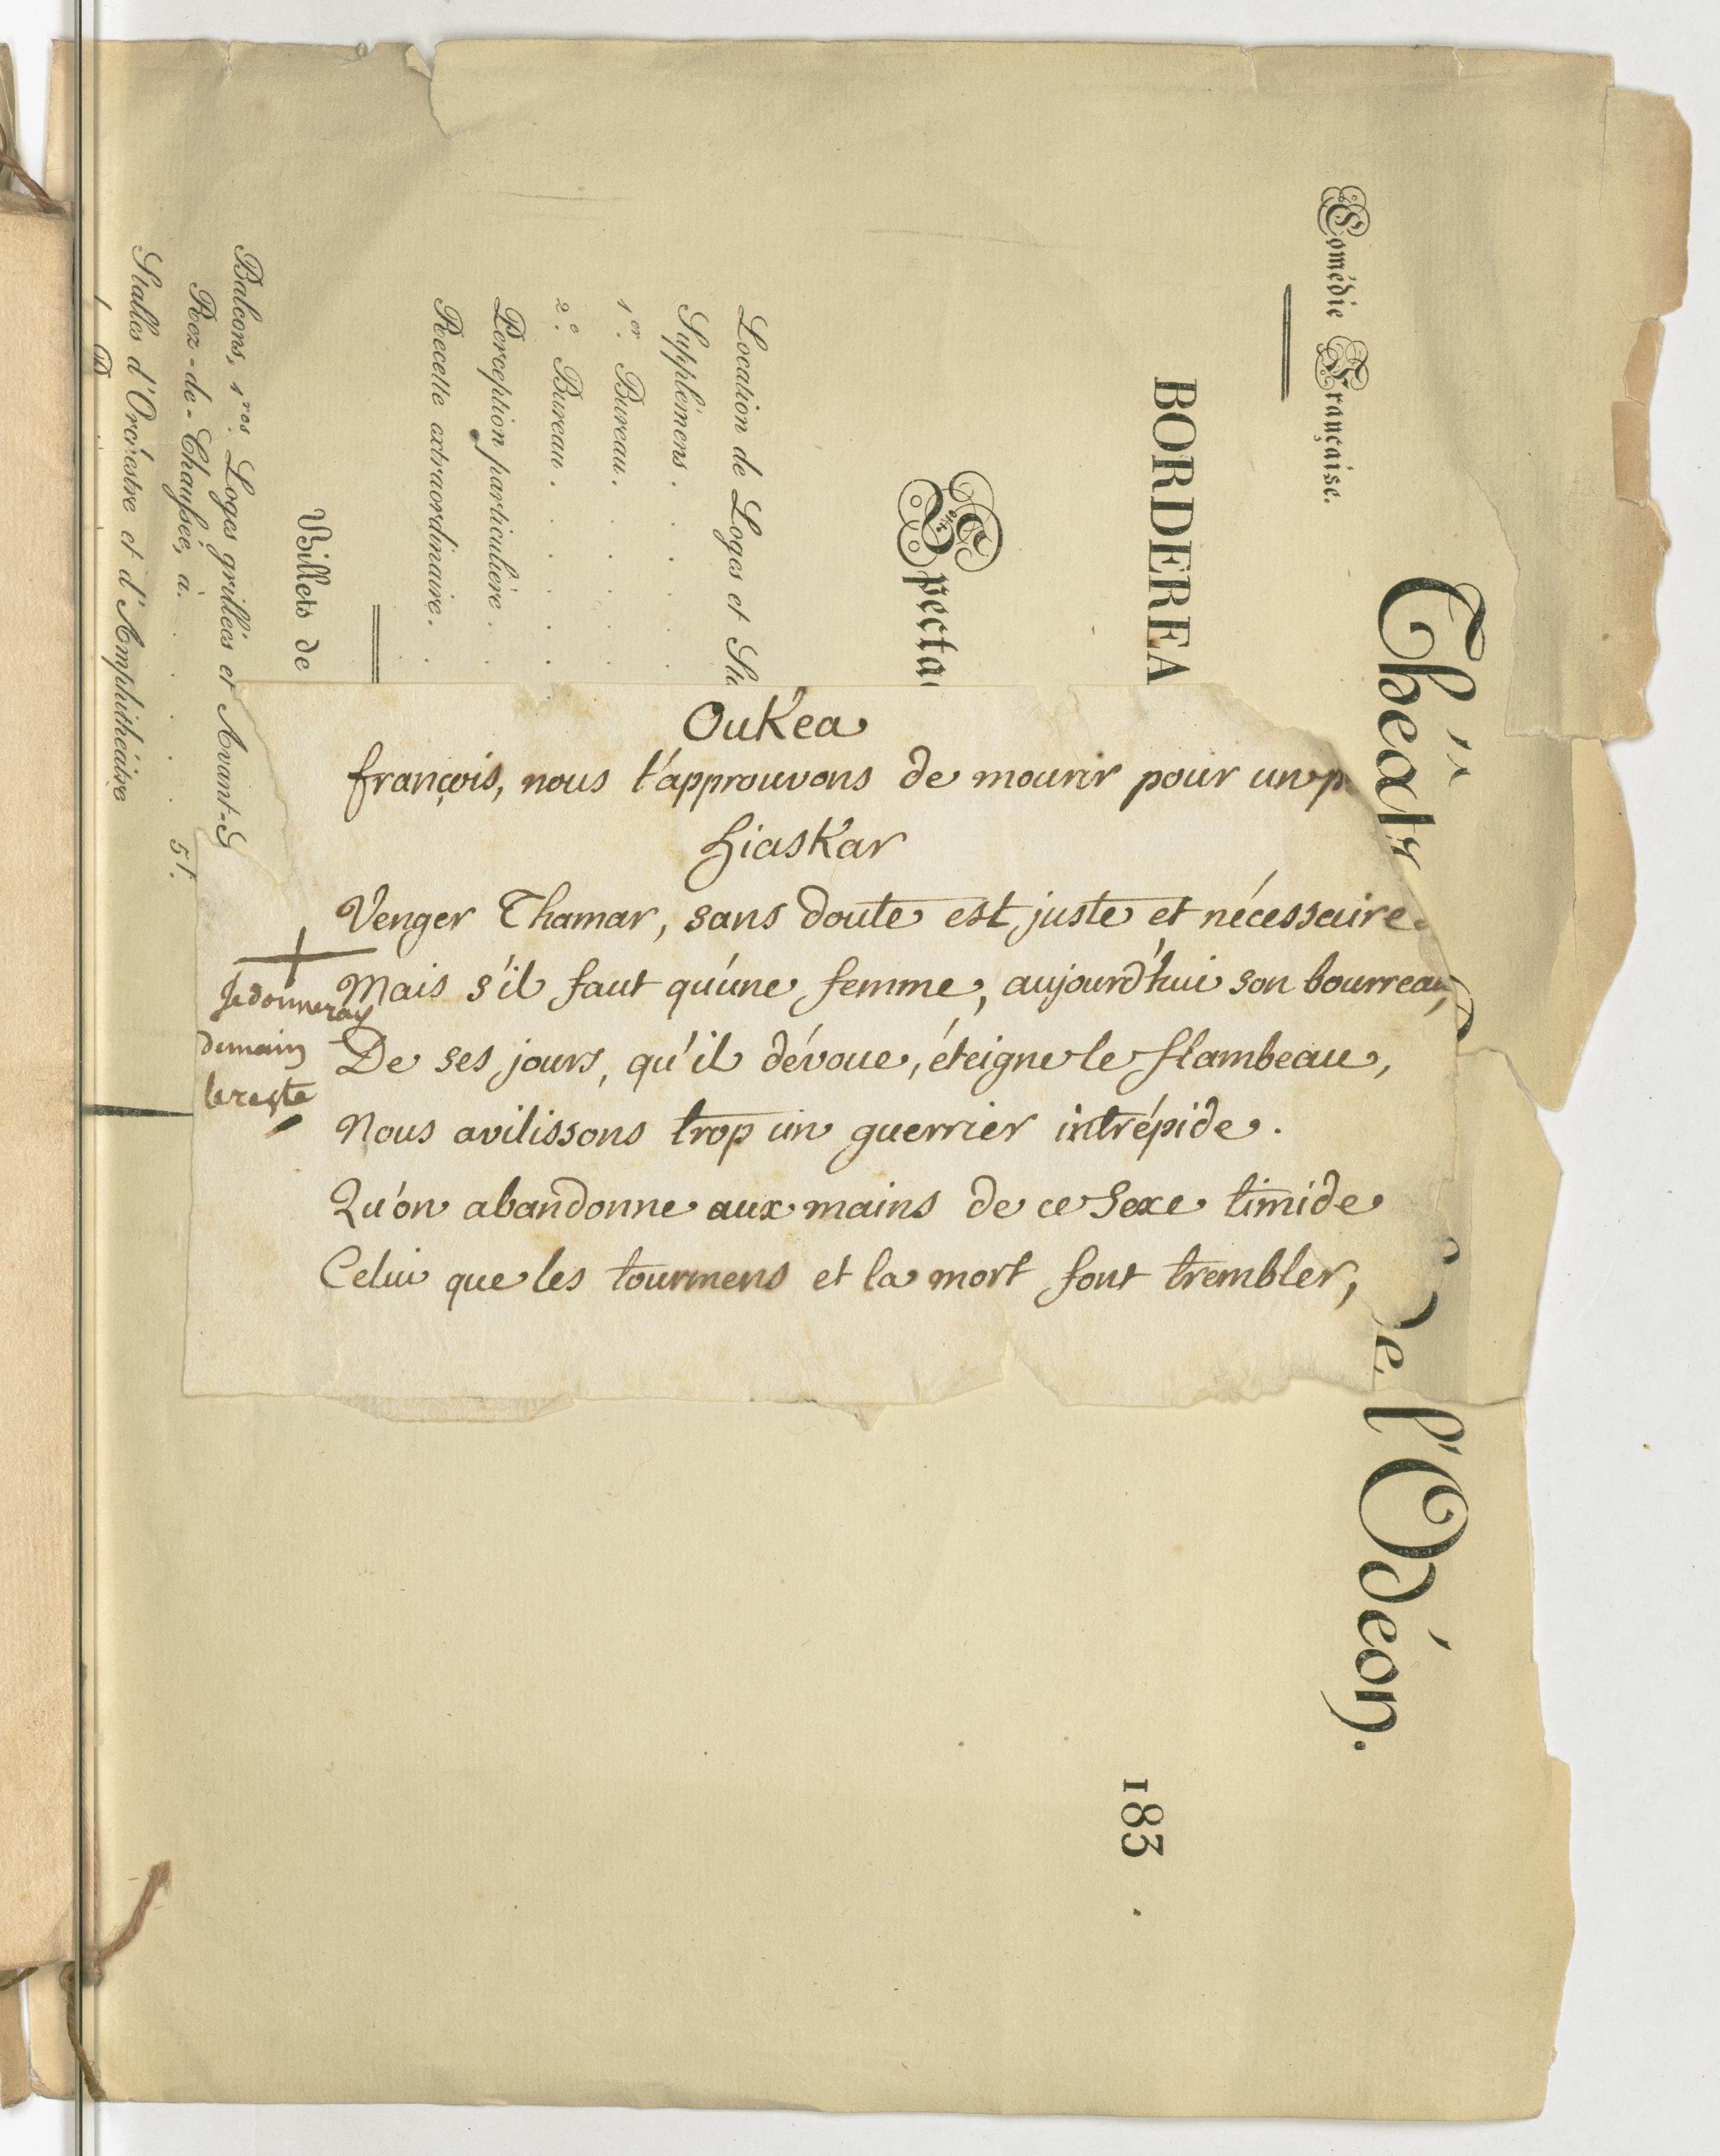 Comédie Française.
Théatr
de l'Odéon.
BORDEREA
183 .
Specta
Location de Loges et Sta
Supplémens . . . .
1er. Bureau. . . . .
2e. Bureau. . . . .
Perception particulière . .
Recette extraordinaire. .
Billets de
Balcons, 1res. Loges grillées et Avant-S
Rez-de-Chaussée, à. . . . . 5f.
Stalles d'Orchestre et d'Amphithéatre
OuKea
françois, nous t'approuvons de mourir pour un p
hiasKar
Venger Thamar, sans doute est juste et nécessaire.
Mais s'il faut qu'une femme, aujourd'hui son bourreau,
De ses jours, qu'il dévoue, éteigne le flambeau,
Nous avilissons trop un guerrier intrépide.
Qu'on abandonne aux mains de ce Sexe timide
Celui que les tourmens et la mort font trembler,
Je donneray
demain
le reste